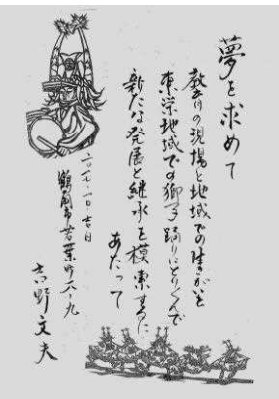 夢を求めて
教育の現場と地域での生きがいを
東栄地域での獅子踊りにとりくんで
新たな発展と継承を模索するに
あたって
二〇一七・一・吉日
鶴岡市若葉町
吉野文夫